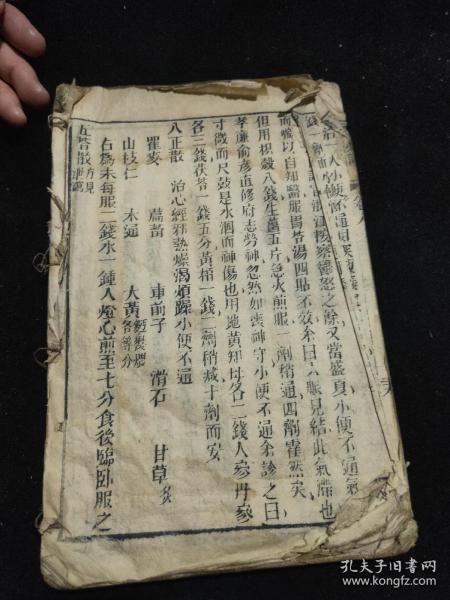 治一人小便不通
按察鬱怒之餘又當盛身小便不通氣
而喘以自知醫服胃苓湯四貼不效余曰六脈見結此氣滯也
但用枳殼八錢生薑五片急火煎服一劑稍通四劑霍然矣
孝廉俞彦直修府志勞神忽然如喪神守小便不通余診之曰
寸微而尺鼓是水涸而神傷也用地黃知母各二錢人參丹參
各三錢茯苓一錢五分黃栢一錢二劑稍减十劑而安
八正散 治心經邪熱燥渴煩躁小便不通
瞿麥 萹蓄 車前子 滑石 甘草炙
山枝仁 木通 大黃麵裹煨各等分
右為末每服二錢水一鍾入燈心煎至七分食後臨卧服之
五苓散方見
孔夫子旧书网
www.kongfz.com